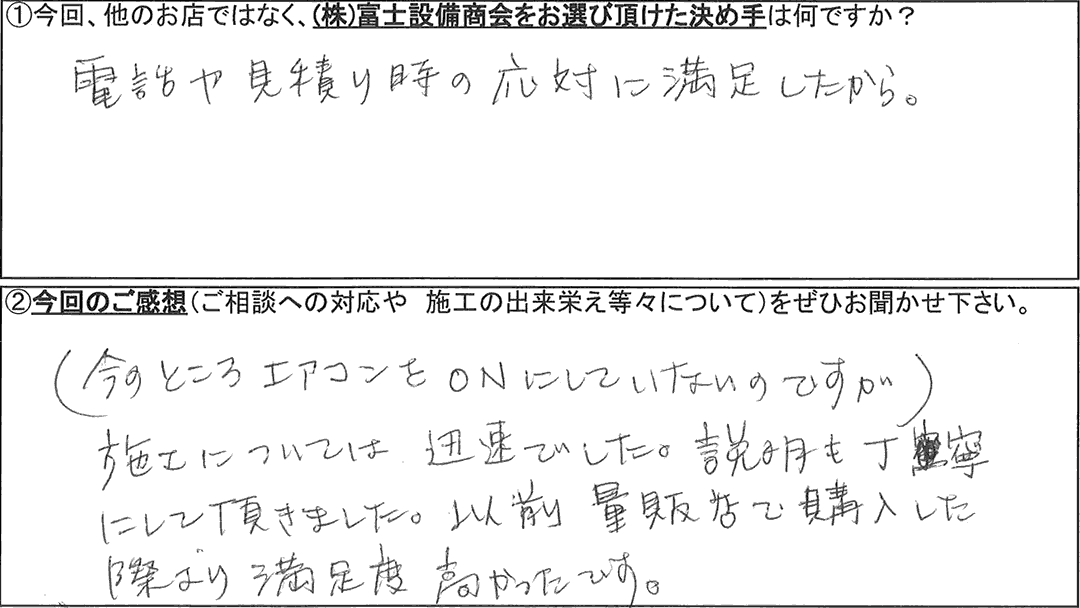 ①今回、他のお店ではなく、(株)富士設備商会をお選び頂けた決め手は何ですか？
電話や見積り時の応対に満足したから。
②今回のご感想(ご相談への対応や　施工の出来栄え等々について)をぜひお聞かせ下さい。
(今のところエアコンをONにしていないのですが)
施工については迅速でした。説明も丁寧
にして頂きました。以前量販店で購入した
際より満足度高かったです。